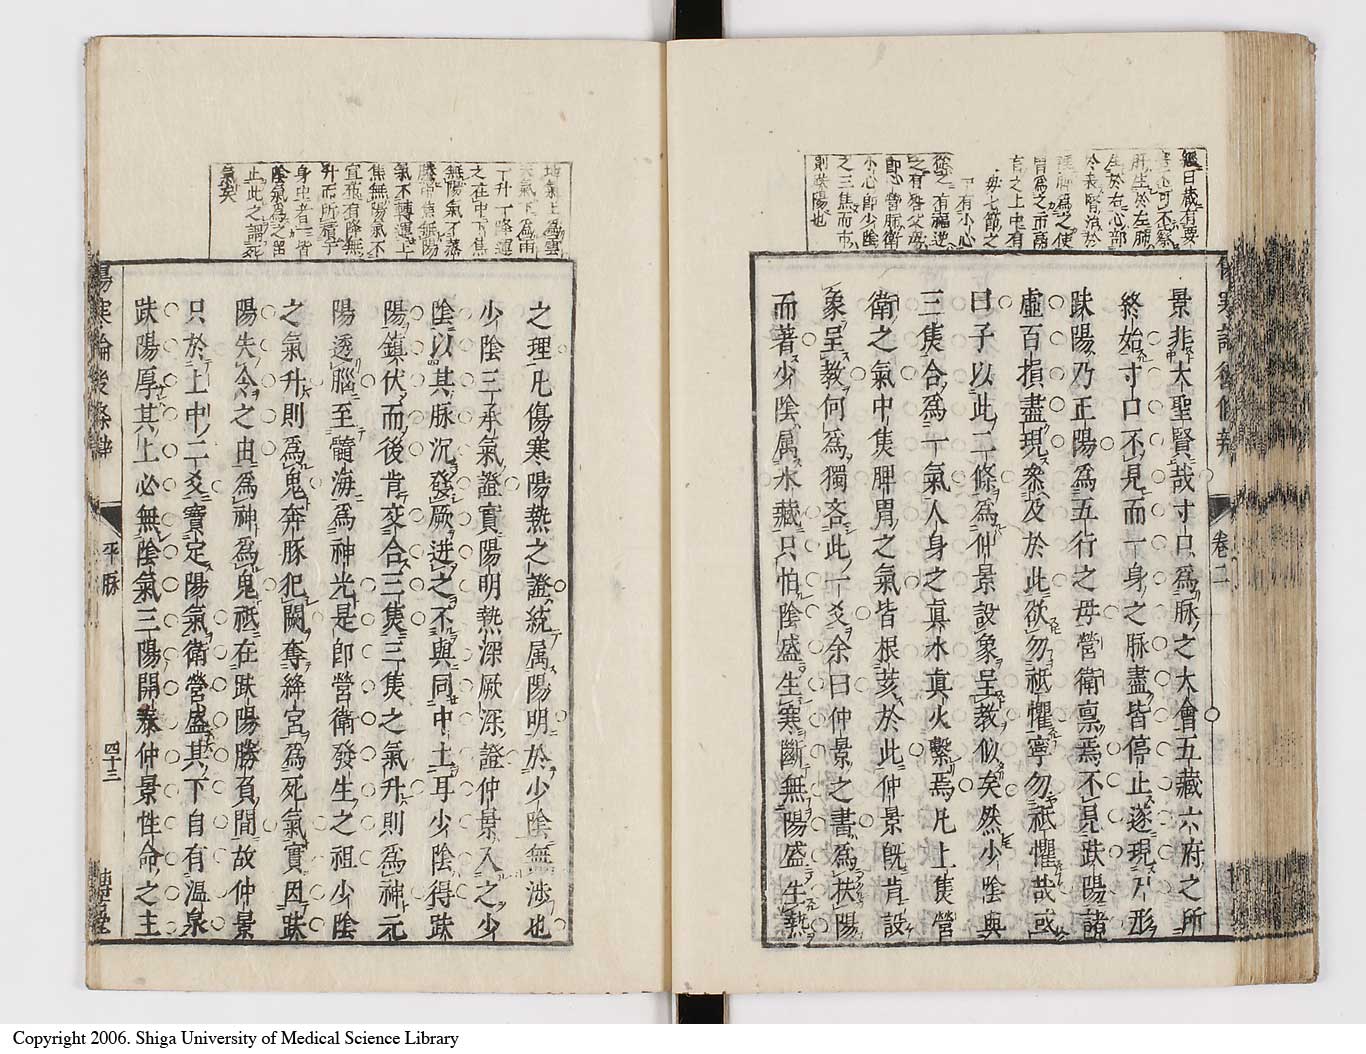 景非大聖賢哉寸口為脉之大會五藏六府之所
終始寸口不見而一身之脉盡皆停止遂現乃形
趺陽乃正陽為五行之母營衛禀焉不見趺陽諸
虛百損盡現叅及於此欲勿祗懼寧勿祗懼哉或
曰子以此二條為仲景設象呈教似矣然少陰與
三焦合為一氣人身之真水真火繫焉凡上焦營
衛之氣中焦脾胃之氣皆根荄於此仲景旣肯設
象呈教何為獨吝此一爻余曰仲景之書為扶陽
而著少陰属水藏只怕陰盛生寒斷無陽盛生熱
之理凡傷寒陽熱之證統属陽明於少陰無涉也
少陰三承氣證實陽明熱深厥深證仲景入之少
陰以其脉沉發厥迸之不與同中土耳少陰得趺
陽鎮伏而後肯交合三焦三焦之氣升則為神元
陽透腦至髓海為神光是即營衛發生之祖少陰
之氣升則為鬼奔豚犯闕奪絳宮為死氣實因趺
陽失令之由為神為鬼祗在趺陽勝負間故仲景
只於上中二爻寶定陽氣衛營盛其下自有温泉
趺陽厚其上必無陰氣三陽開泰仲景性命之主
經曰藏有要
害不可不察
肝生於左肺
生於右心部
於表腎治於
裡脾為之使
胃為之市鬲
肓之上中有
父母七節之
下有小心
從之有福逆
之有咎父母
即心營肺衛
小心即少陰
之三焦而市
則趺陽也
地氣上為雲
天氣下為雨
一升一降運
之在中下焦
無陽氣不蒸
騰中焦無陽
氣不轉運上
焦無陽氣不
宣飛有降無
升而所積于
身中者皆
陰氣為之留
止此之謂死
氣矣
卷二
傷寒論後條辨
平脉
四十三
Copyright 2006. Shiga University of Medical Science Library